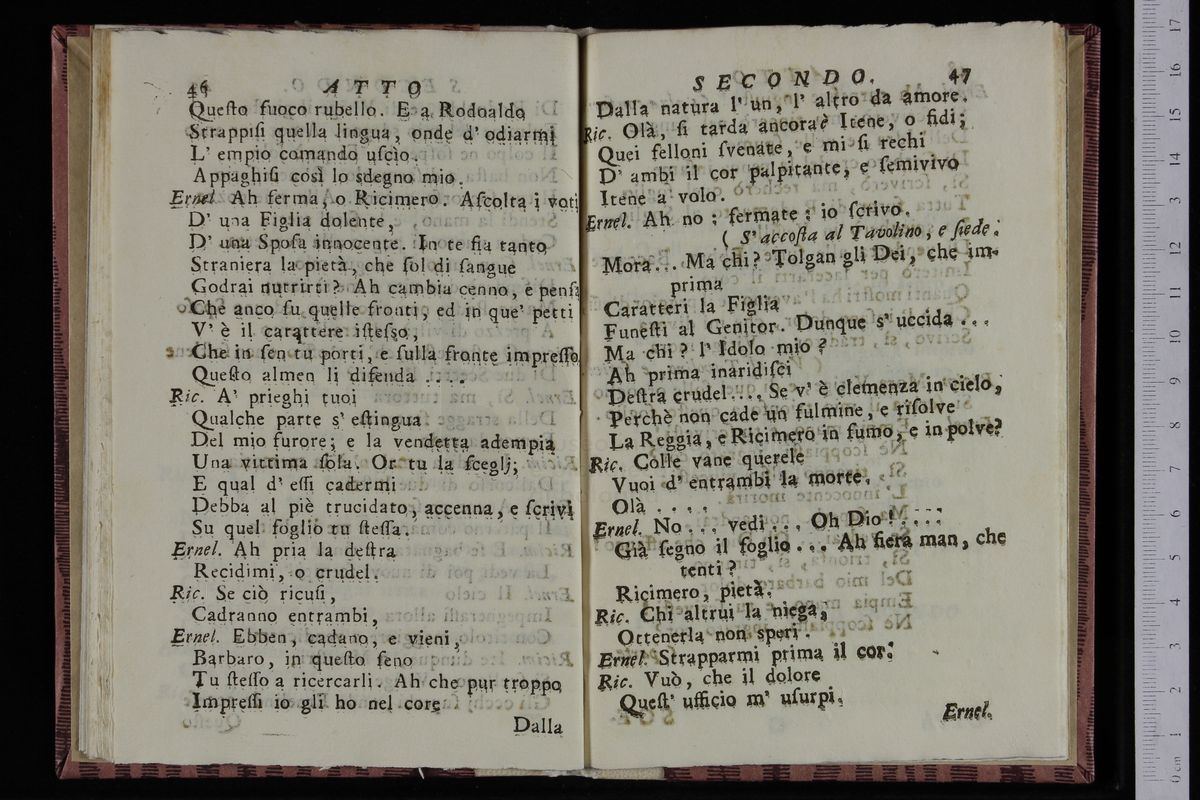 46 ATTO
Queſto fuoco rubello. E a Rodoaldo
Strappiſi quella lingua, onde d' odiarmi
L' empio comando uſcìo.
Appaghiſi così lo sdegno mio.
Ernel. Ah ferma, o Ricimero. Aſcolta i voti
D' una Figlia dolente,
D' una Spoſa innocente. In te fia tanto
Straniera la pietà, che ſol di ſangue
Godrai nutrirti? Ah cambia cenno, e penſa
Che anco ſu quelle fronti, ed in que' petti
V' è il carattere iſteſso,
Che in ſen tu porti, e ſulla fronte impreſſo.
Queſto almen li difenda ....
Ric. A' prieghi tuoi
Qualche parte s' eſtingua
Del mio furore; e la vendetta adempia
Una vittima ſola. Or tu la ſcegli;
E qual d' eſſi cadermi
Debba al piè trucidato, accenna, e ſcrivi
Su quel foglio tu ſteſſa.
Ernel. Ah pria la deſtra
Recidimi, o crudel.
Ric. Se ciò ricuſi,
Cadranno entrambi,
Ernel. Ebben, cadano, e vieni,
Barbaro, in queſto ſeno
Tu ſteſſo a ricercarli. Ah che pur troppo
Impreſſi io gli ho nel core
Dalla
SECONDO. 47
Dalla natura l' un, l' altro da amore.
Ric. Olà, ſi tarda ancora? Itene, o fidi;
Quei felloni ſvenate, e mi ſi rechi
D' ambi il cor palpitante, e ſemivivo
Itene a volo.
Ernel. Ah no; fermate; io ſcrivo.
( S' accoſta al Tavolino, e ſiede.
Mora... Ma chi? Tolgan gli Dei, che im-
prima
Caratteri la Figlia
Funeſti al Genitor. Dunque s' uccida ...
Ma chi? l' Idolo mio?
Ah prima inaridiſci
Deſtra crudel.... Se v' è clemenza in cielo,
Perchè non cade un fulmine, e riſolve
La Reggia, e Ricimero in fumo, e in polve?
Ric. Colle vane querele
Vuoi d' entrambi la morte.
Olà ....
Ernel. No ... vedi ... Oh Dio! ....
Già ſegno il foglio... Ah fiera man, che
tenti?
Ricimero, pietà.
Ric. Chi altrui la niega,
Ottenerla non speri.
Ernel. Strapparmi prima il cor.
Ric. Vuò, che il dolore
Queſt' ufficio m' uſurpi.
Ernel.
0 cm 1 2 3 4 5 6 7 8 9 10 11 12 13 14 15 16 17